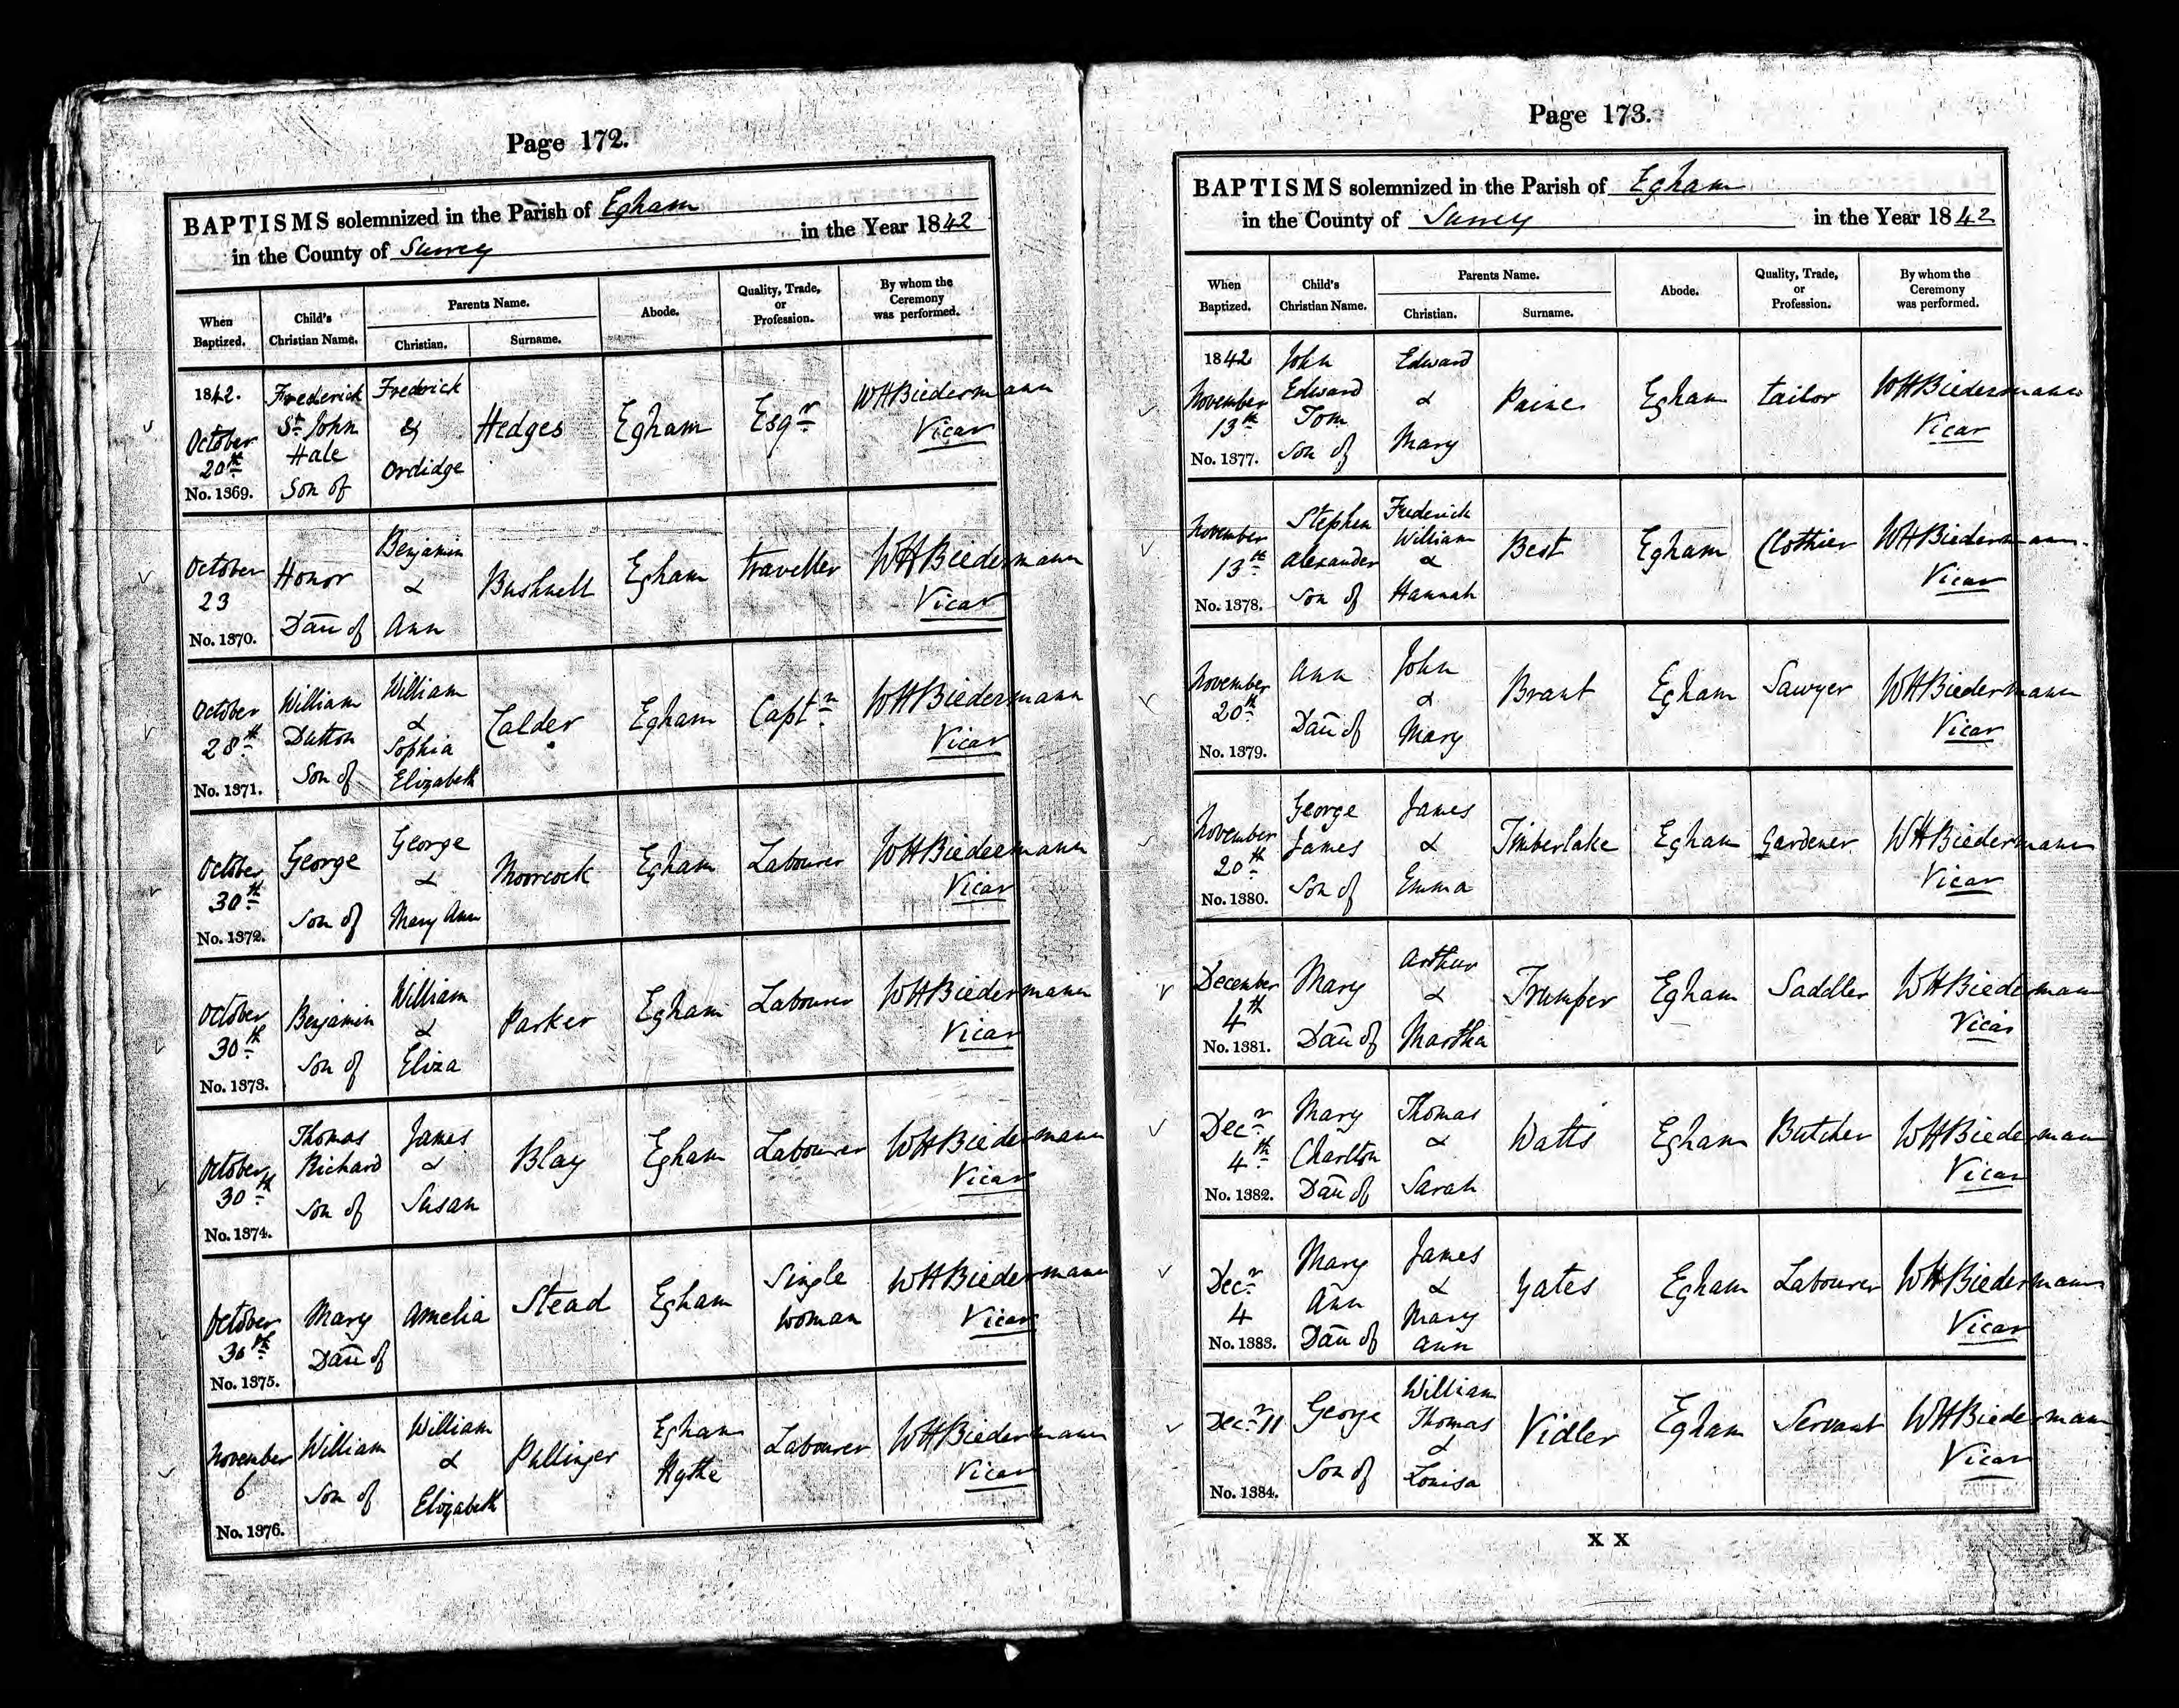 Page 172.
BAPTISMS solemnized in the Parish of Egham
in the County of Surrey in the Year 1842
When Baptized.
Child's Christian Name.
Parents Name.
Christian.
Surname.
Abode.
Quality, Trade, or Profession.
By whom the Ceremony was performed.
1842.
October
20th
No. 1369.
Frederick
St. John
Hale
Son of
Fredrick
&
Ordidge
Hedges
Egham
Esqr
WHBiedermann
Vicar
October
23
No. 1370.
Honor
Dau of
Benjamin
&
Ann
Bushnell
Egham
traveller
WHBiedermann
Vicar
October
28th
No. 1371.
William
Dutton
Son of
William
&
Sophia
Elizabeth
Calder
Egham
Captn
WHBiedermann
Vicar
October
30th
No. 1372.
George
Son of
George
&
Mary Ann
Moorcock
Egham
Labourer
WHBiedermann
Vicar
October
30th
No. 1373.
Benjamin
Son of
William
&
Eliza
Parker
Egham
Labourer
WHBiedermann
Vicar
October
30th
No. 1374.
Thomas
Richard
Son of
James
&
Susan
Blay
Egham
Labourer
WHBiedermann
Vicar
October
30th
No. 1375.
Mary
Dau of
Amelia
Stead
Egham
Single
woman
WHBiedermann
Vicar
November
6
No. 1376.
William
Son of
William
&
Elizabeth
Pullinger
Egham
Hythe
Labourer
WHBiedermann
Vicar
Page 173.
BAPTISMS solemnized in the Parish of Egham
in the County of Surrey in the Year 1842
When Baptized.
Child's Christian Name.
Parents Name.
Christian.
Surname.
Abode.
Quality, Trade, or Profession.
By whom the Ceremony was performed.
1842
November
13th
No. 1377.
John
Edward
Tom
Son of
Edward
&
Mary
Paine
Egham
tailor
WHBiedermann
Vicar
November
13th
No. 1378.
Stephen
Alexander
Son of
Frederick
William
&
Hannah
Best
Egham
Clothier
WHBiedermann
Vicar
November
20th
No. 1379.
Ann
Dau of
John
&
Mary
Brant
Egham
Sawyer
WHBiedermann
Vicar
November
20th
No. 1380.
George
James
Son of
James
&
Emma
Timberlake
Egham
Gardener
WHBiedermann
Vicar
December
4th
No. 1381.
Mary
Dau of
Arthur
&
Martha
Trumper
Egham
Saddler
WHBiedermann
Vicar
Decr
4th
No. 1382.
Mary
Charlton
Dau of
Thomas
&
Sarah
Watts
Egham
Butcher
WHBiedermann
Vicar
Decr
4
No. 1383.
Mary
Ann
Dau of
James
&
Mary
Ann
Yates
Egham
Labourer
WHBiedermann
Vicar
Decr 11
No. 1384.
George
Son of
William
Thomas
&
Louisa
Vidler
Egham
Servant
WHBiedermann
Vicar
X X